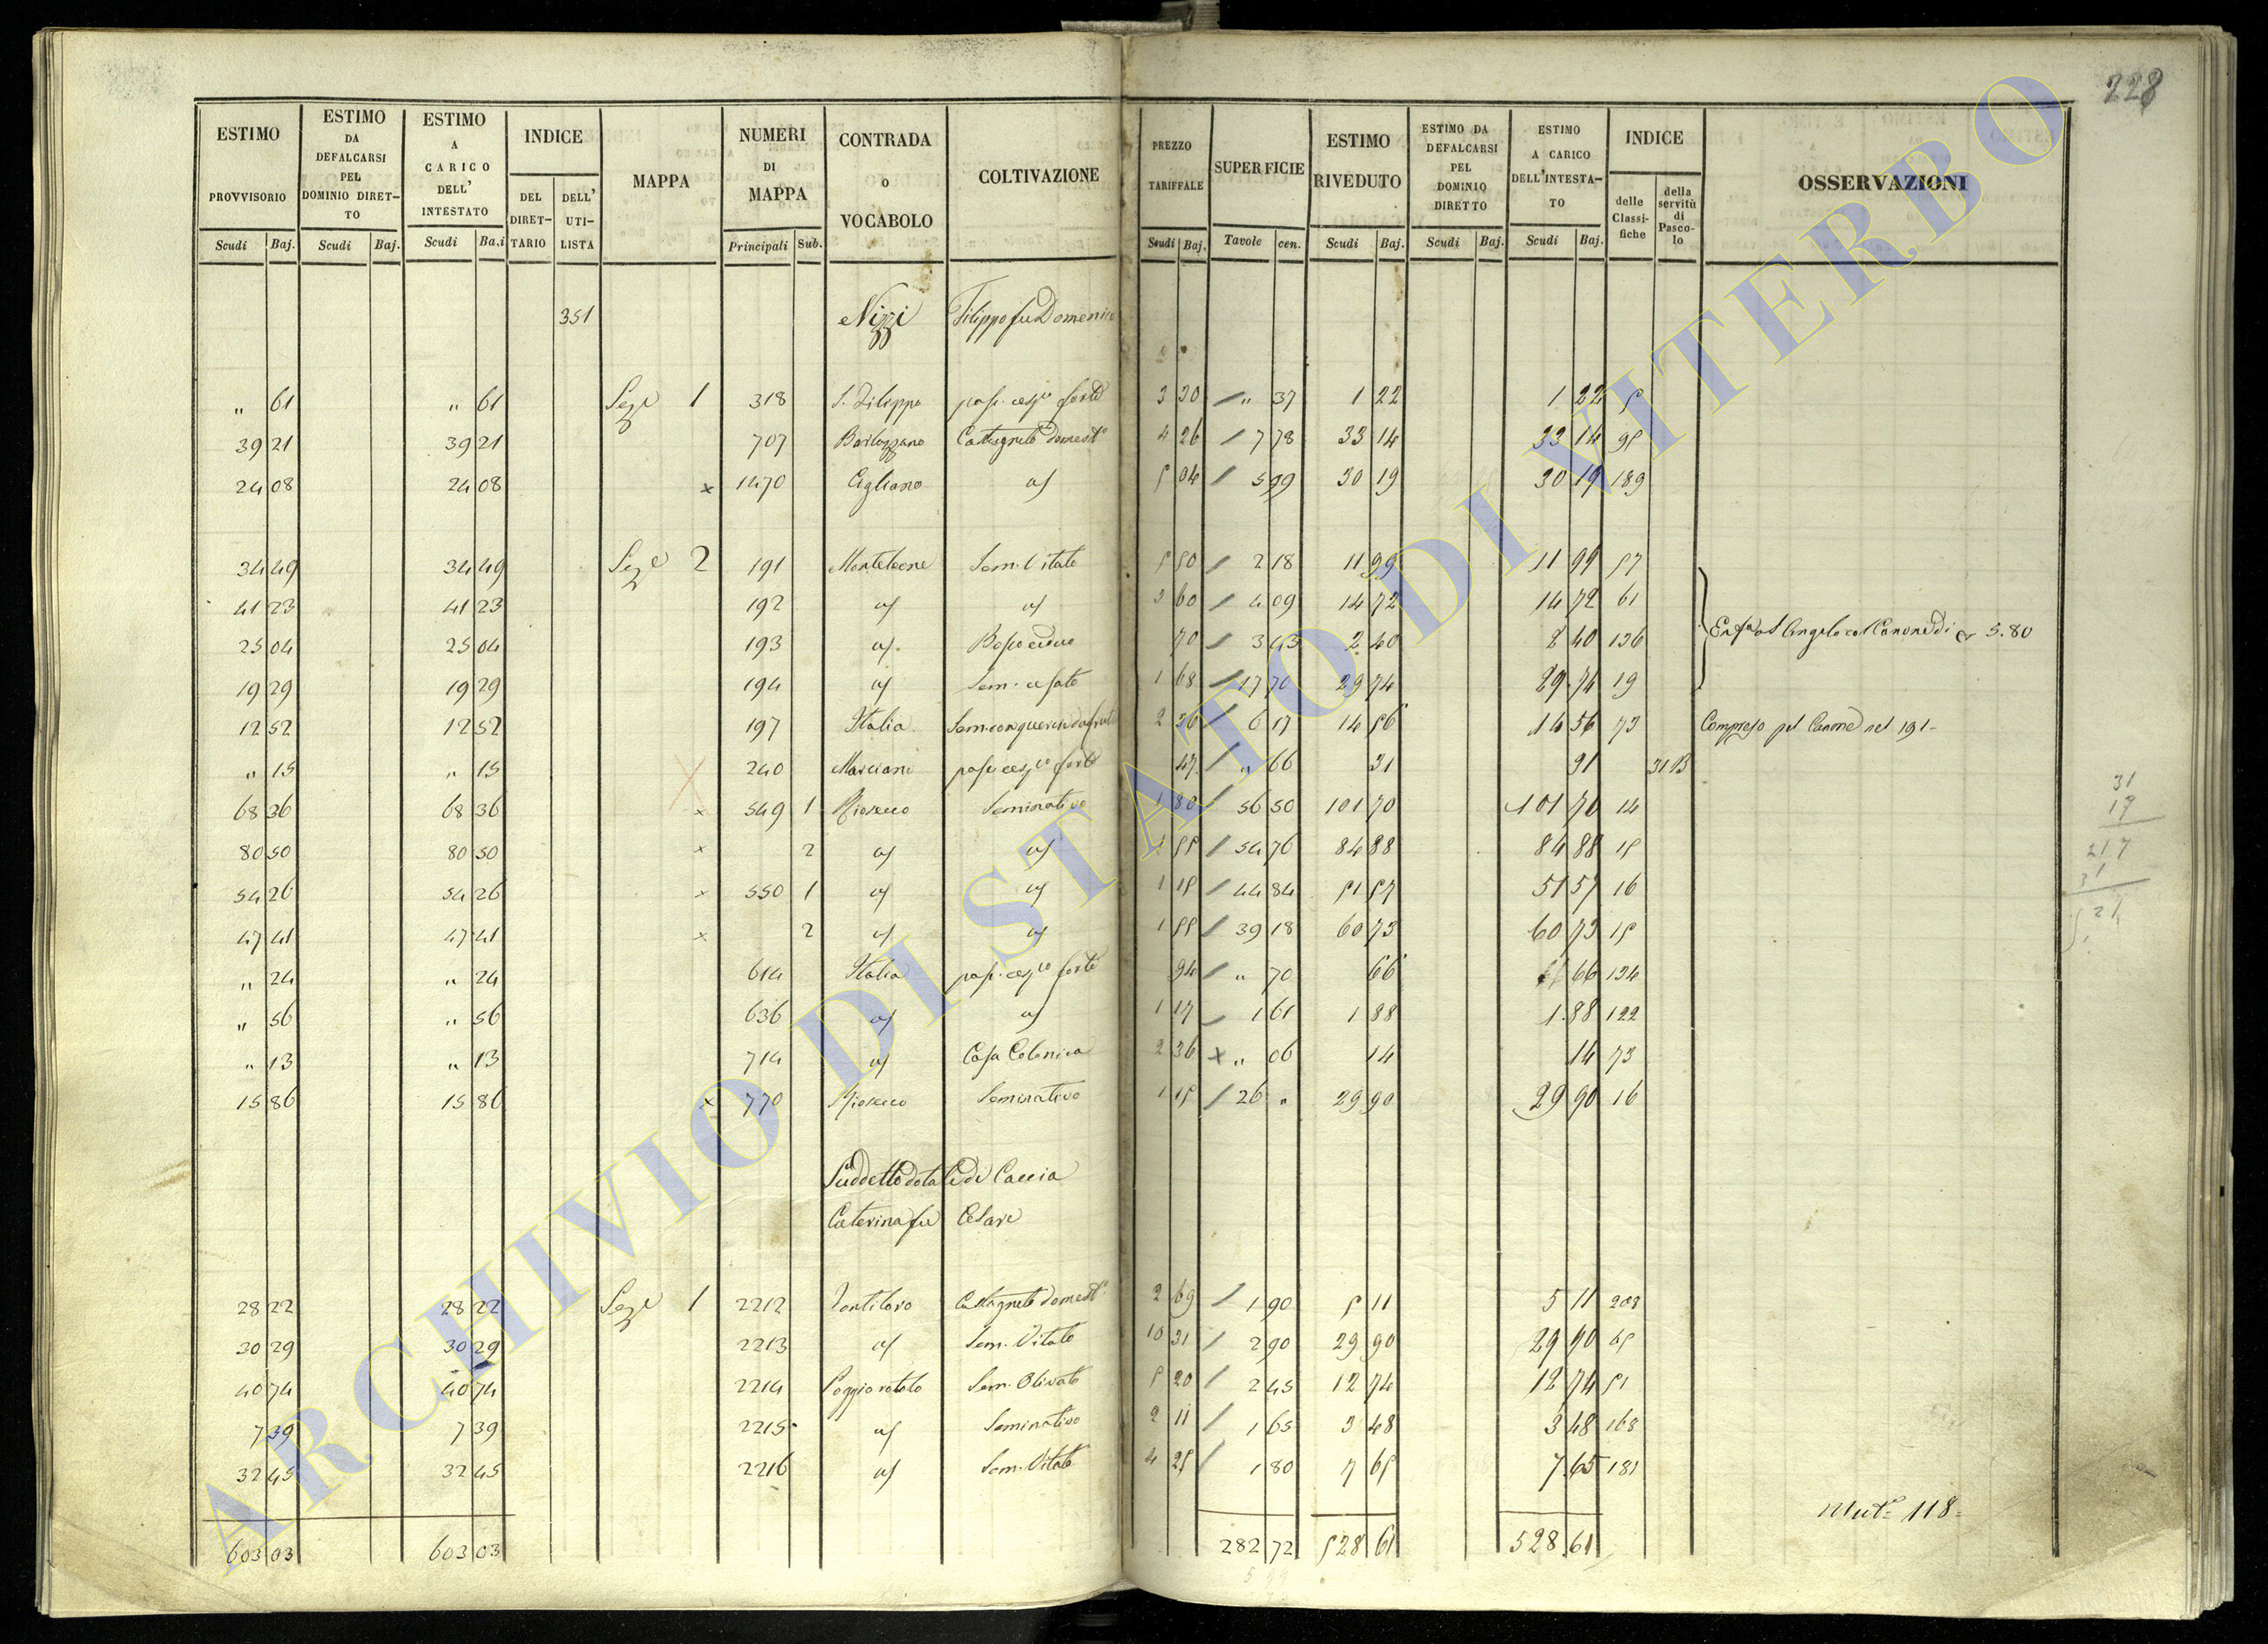 228
ESTIMO PROVVISORIO Scudi Baj.
ESTIMO DA DEFALCARSI PEL DOMINIO DIRETTO Scudi Baj.
ESTIMO A CARICO DELL' INTESTATO Scudi Ba.i
INDICE DEL DIRETTARIO DELL' UTILISTA
MAPPA
NUMERI DI MAPPA Principali Sub.
CONTRADA o VOCABOLO
COLTIVAZIONE
PREZZO TARIFFALE Scudi Baj.
SUPERFICIE Tavole cen.
ESTIMO RIVEDUTO Scudi Baj.
ESTIMO DA DEFALCARSI PEL DOMINIO DIRETTO Scudi Baj.
ESTIMO A CARICO DELL'INTESTATO Scudi Baj.
INDICE delle Classifiche della servitù di Pascolo
OSSERVAZIONI
351 Nizzi Filippo fu Domenico
" 61 " 61 Seze 1 318 S. Filippo pas. cesp forte 3 30 / " 37 1 22 1 22 5
39 21 39 21 707 Barlozzano Castagneto domest 4 26 / 7 78 33 14 33 14 95
24 08 24 08 x 1470 Cigliano 5 04 / 5 99 30 19 30 19 189
34 49 34 49 Seze 2 191 Monteleone Sem. Vitato 5 50 / 2 18 11 99 11 99 57
41 23 41 23 192 3 60 / 4 09 14 72 14 72 61
25 04 25 04 193 Bosco ceduo 70 / 3 43 2 40 2 40 136 5.80
19 29 19 29 194 1 68 / 17 70 29 74 29 74 19
12 52 12 52 197 Italia 2 36 / 6 17 14 56 14 56 73 Compreso pel Canone nel 191
" 15 " 15 240 Marciano pas. cesp forte 47 / " 66 31 31 31 13
68 36 68 36 x 549 1 Rioseccо Seminativo 1 80 / 56 50 101 70 101 70 14
80 50 80 50 x 2 1 55 / 54 76 84 88 84 88 15
54 26 54 26 x 550 1 1 15 / 44 84 51 57 51 57 16
47 41 47 41 x 2 1 55 / 39 18 60 73 60 73 15
" 24 " 24 614 Italia pas. cesp forte 94 / " 70 66 66 134
" 56 " 56 636 1 17 1 61 1 88 1 88 122
" 13 " 13 714 Casa Colonica 2 36 x " 06 14 14 73
15 86 15 86 x 770 Riosecco Seminativo 1 15 / 26 " 29 90 29 90 16
Suddetto dotale di Caccia
Caterina fu Cesare
28 22 28 22 Seze 1 2212 Castagneto domest 2 69 / 1 90 5 11 5 11 208
30 29 30 29 2213 Sem. Vitato 10 31 / 2 90 29 90 29 90 65
40 74 40 74 2214 Poggio rotolo Sem. Olivato 5 20 / 2 45 12 74 12 74 51
7 39 7 39 2215 Seminativo 2 11 / 1 65 3 48 3 48 168
32 45 32 45 2216 Sem. Vitato 4 25 / 1 80 7 65 7 65 181
Mut. 118
603 03 603 03 282 72 528 61 528 61
31
19
217
31
ARCHIVIO DI STATO DI VITERBO